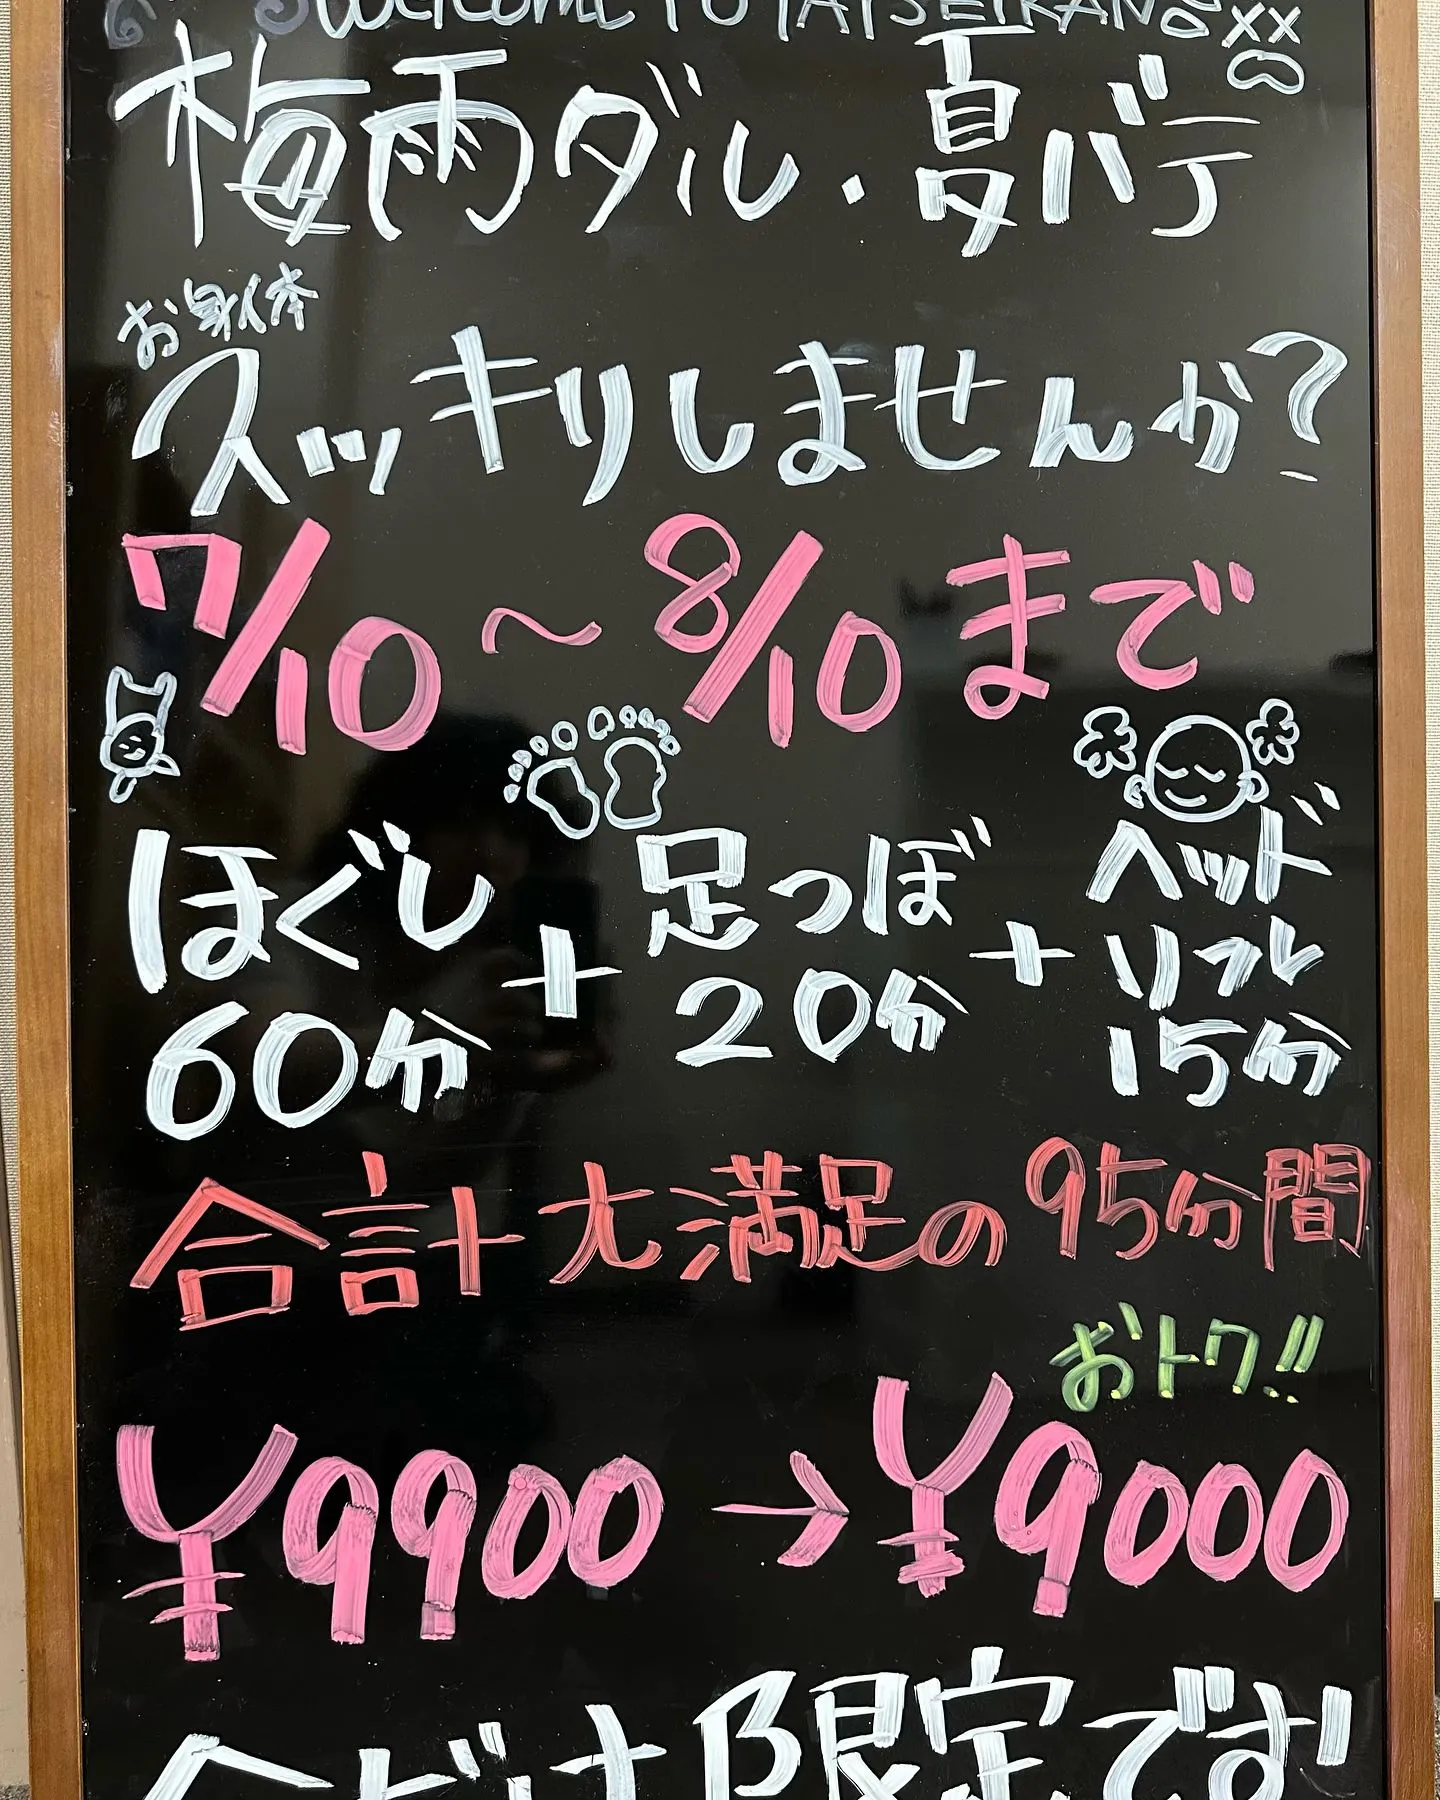 Welcome TO TAISEIKAN
梅雨ダル・夏バテ
お身体
スッキリしませんか?
7/10～8/10まで
ほぐし 60分 + 足つぼ 20分 + ヘッドリフレ 15分
合計 大満足の 95分間
おトク!!
¥9900 → ¥9000
限定です